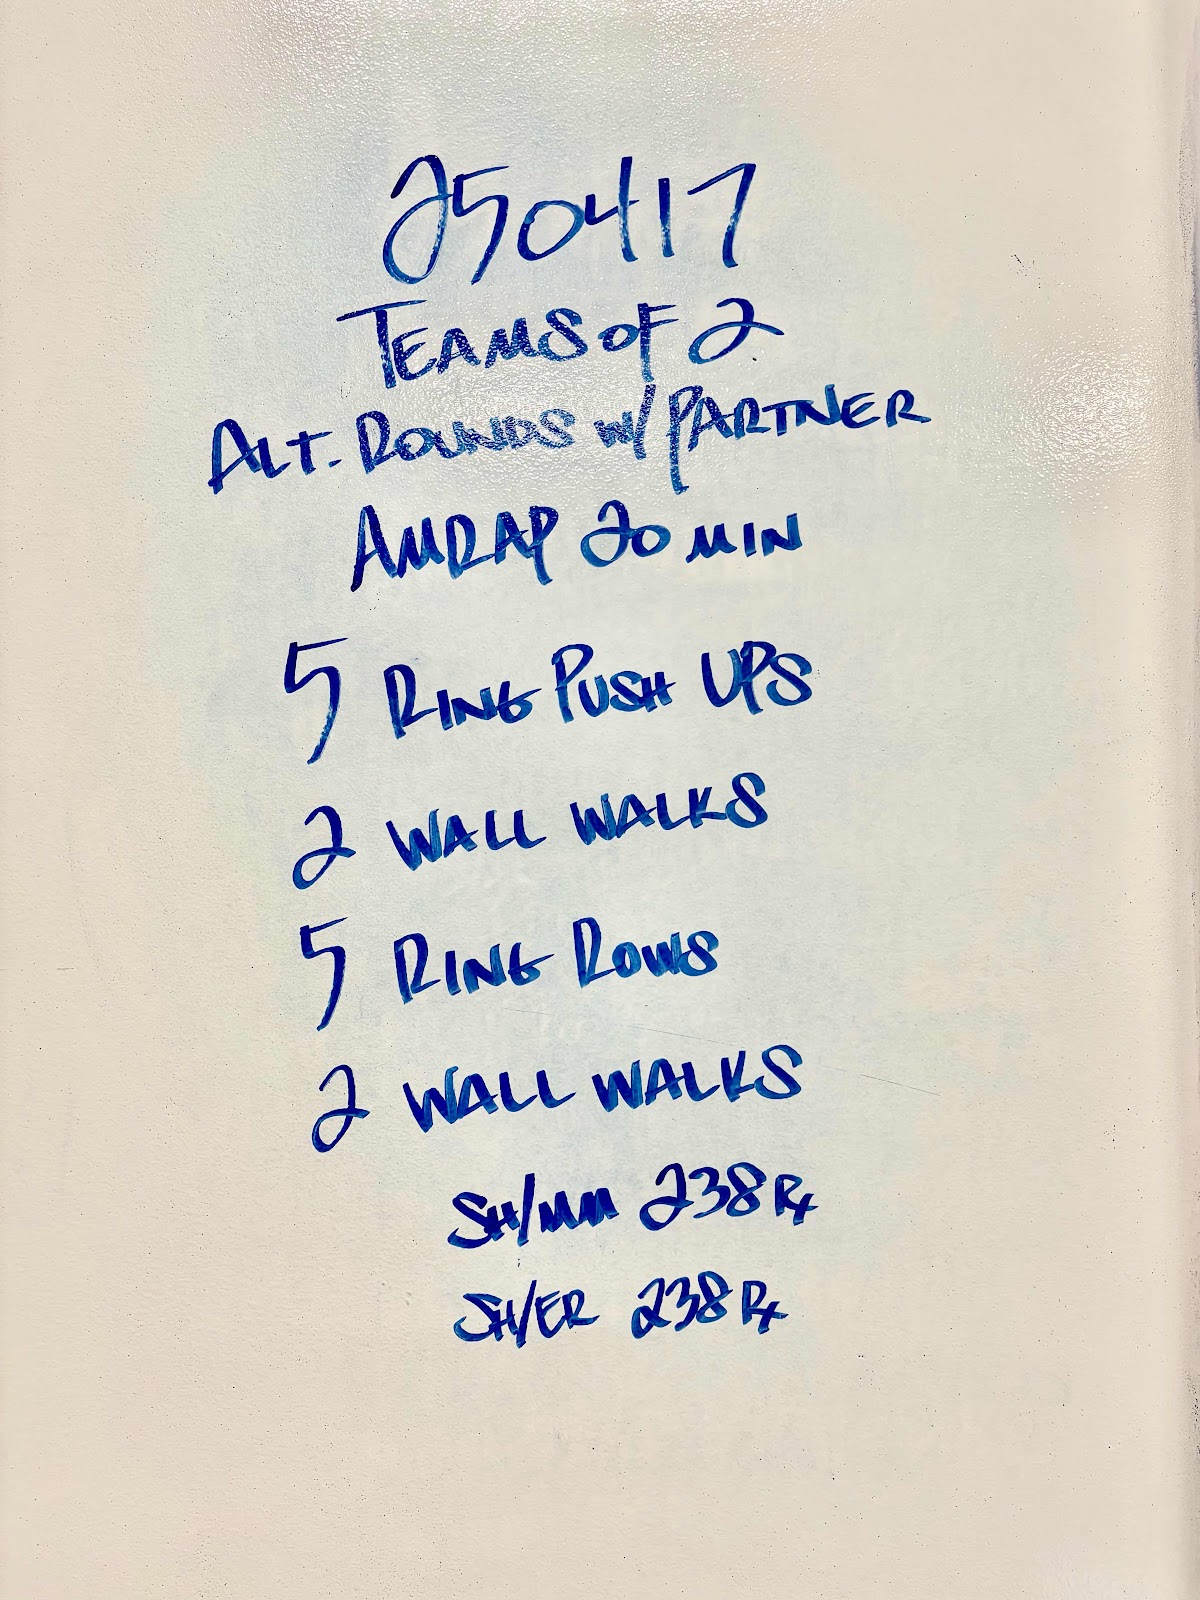 250417
TEAMS OF 2
ALT. ROUNDS W/ PARTNER
AMRAP 20 MIN
5 RING PUSH UPS
2 WALL WALKS
5 RING ROWS
2 WALL WALKS
SH/MM 238 Rx
SH/ER 238 Rx